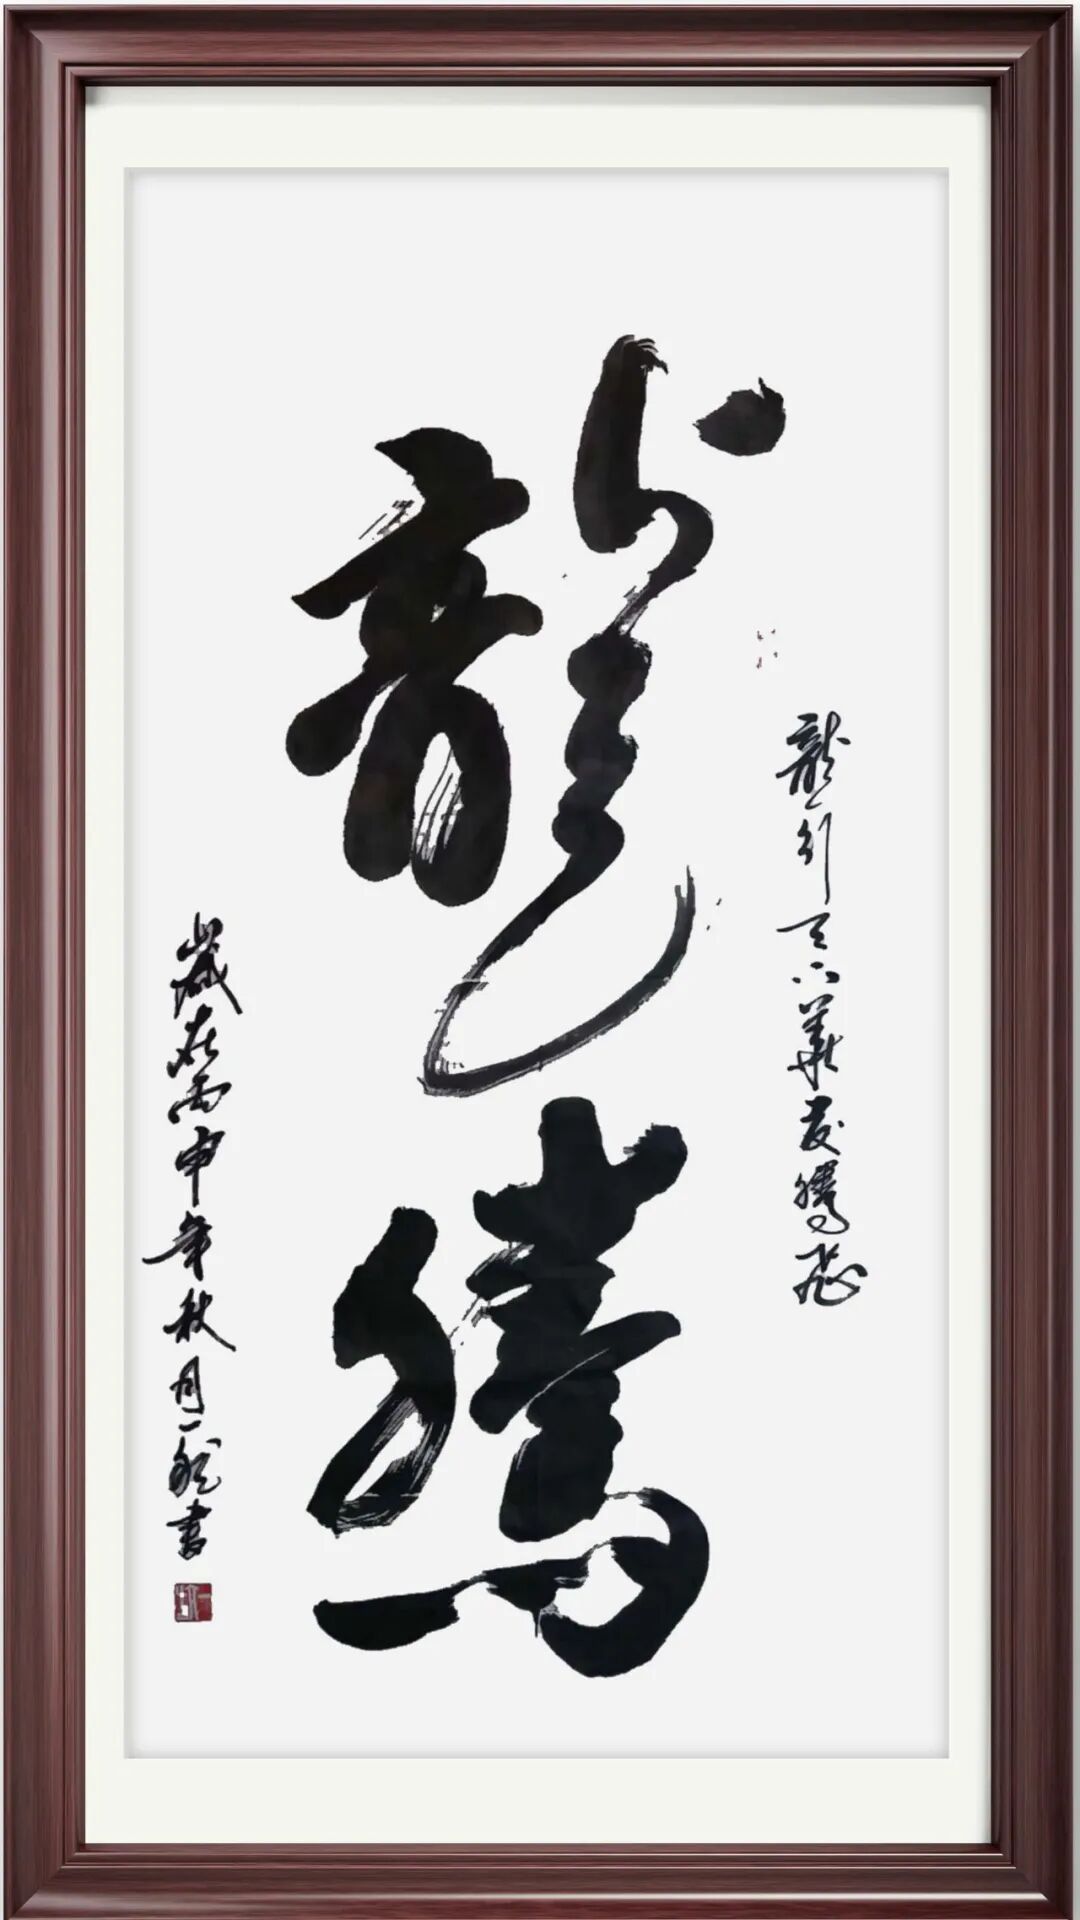 龍行天下華夏騰飛
龍騰
歲在丙申年秋月一書